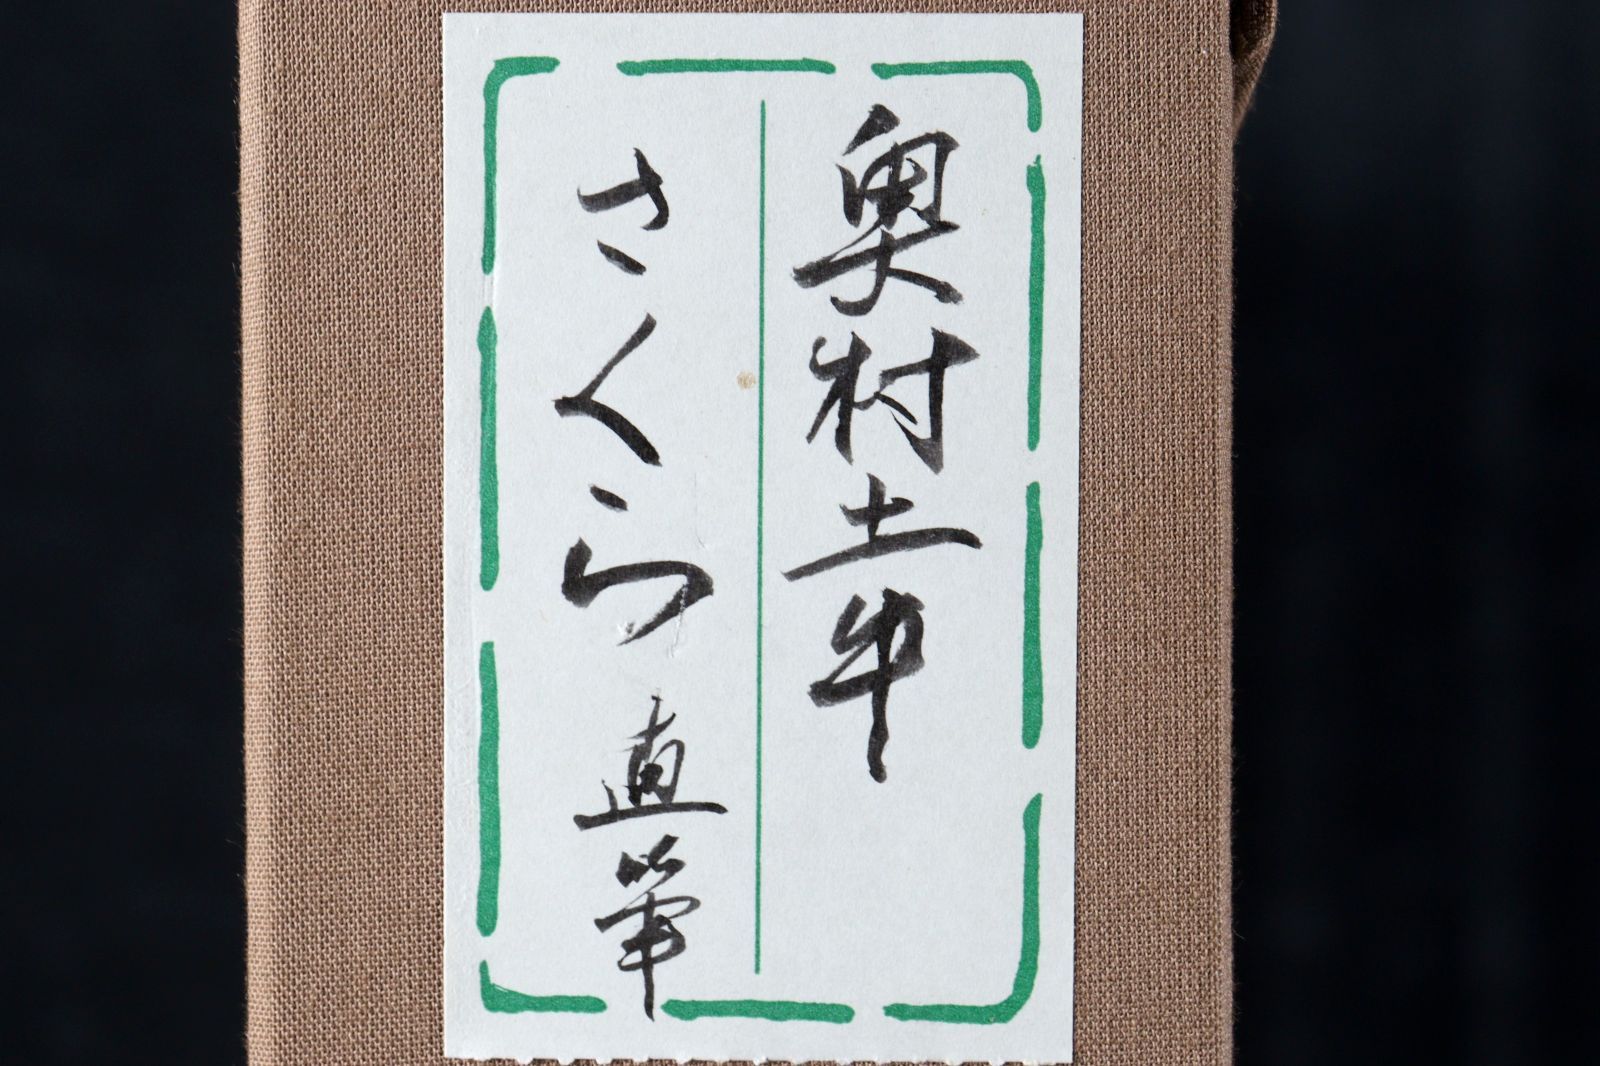 奥村土牛
さくら 直筆